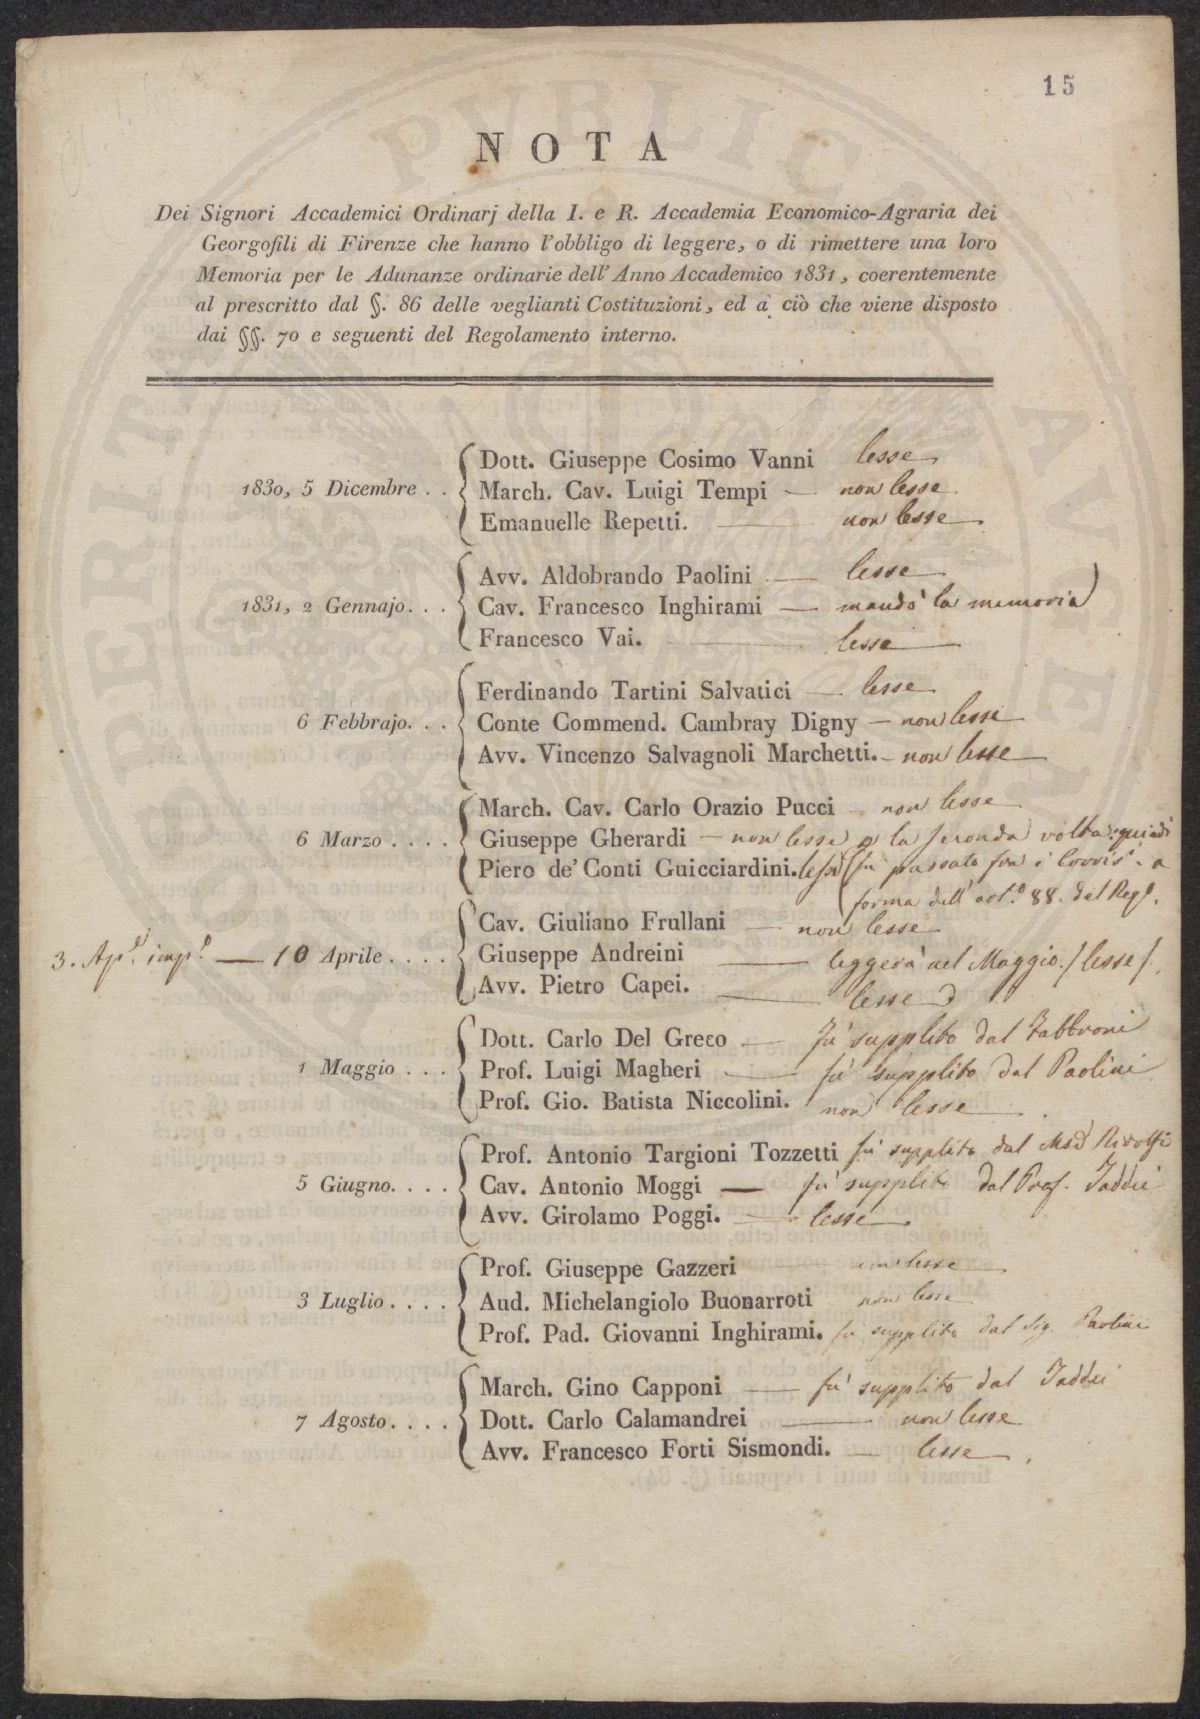 15
NOTA
Dei Signori Accademici Ordinarj della I. e R. Accademia Economico-Agraria dei
Georgofili di Firenze che hanno l'obbligo di leggere, o di rimettere una loro
Memoria per le Adunanze ordinarie dell'Anno Accademico 1831, coerentemente
al prescritto dal §. 86 delle veglianti Costituzioni, ed a ciò che viene disposto
dai §§. 70 e seguenti del Regolamento interno.
Dott. Giuseppe Cosimo Vanni lesse
1830, 5 Dicembre . . March. Cav. Luigi Tempi — non lesse
Emanuelle Repetti. — non lesse
Avv. Aldobrando Paolini — lesse
1831, 2 Gennajo. . . Cav. Francesco Inghirami — mandò la memoria
Francesco Vai. — lesse
Ferdinando Tartini Salvatici — lesse
6 Febbrajo. . . Conte Commend. Cambray Digny — non lesse
Avv. Vincenzo Salvagnoli Marchetti. — non lesse
March. Cav. Carlo Orazio Pucci — non lesse
6 Marzo . . . . Giuseppe Gherardi — non lesse p la seconda volta: quindi
Piero de' Conti Guicciardini. lesse (fù passato fra i Corris.ti a
forma dell' art.o 88. del Reg.o
Cav. Giuliano Frullani — non lesse
3. Ap.e imp.o — 10 Aprile . . . . Giuseppe Andreini — leggerà nel Maggio. / lesse /
Avv. Pietro Capei. — lesse
Dott. Carlo Del Greco — fù supplito dal Fabbroni
1 Maggio . . . Prof. Luigi Magheri — fù supplito dal Paolini
Prof. Gio. Batista Niccolini. non lesse
Prof. Antonio Targioni Tozzetti fù supplito dal Ridolfi
5 Giugno. . . . Cav. Antonio Moggi — fù supplito dal Prof. Taddei
Avv. Girolamo Poggi. — lesse
Prof. Giuseppe Gazzeri non lesse
3 Luglio . . . . Aud. Michelangiolo Buonarroti non lesse
Prof. Pad. Giovanni Inghirami. fù supplito dal Sig. Paolini
March. Gino Capponi — fù supplito dal Taddei
7 Agosto. . . . Dott. Carlo Calamandrei — non lesse
Avv. Francesco Forti Sismondi. — lesse